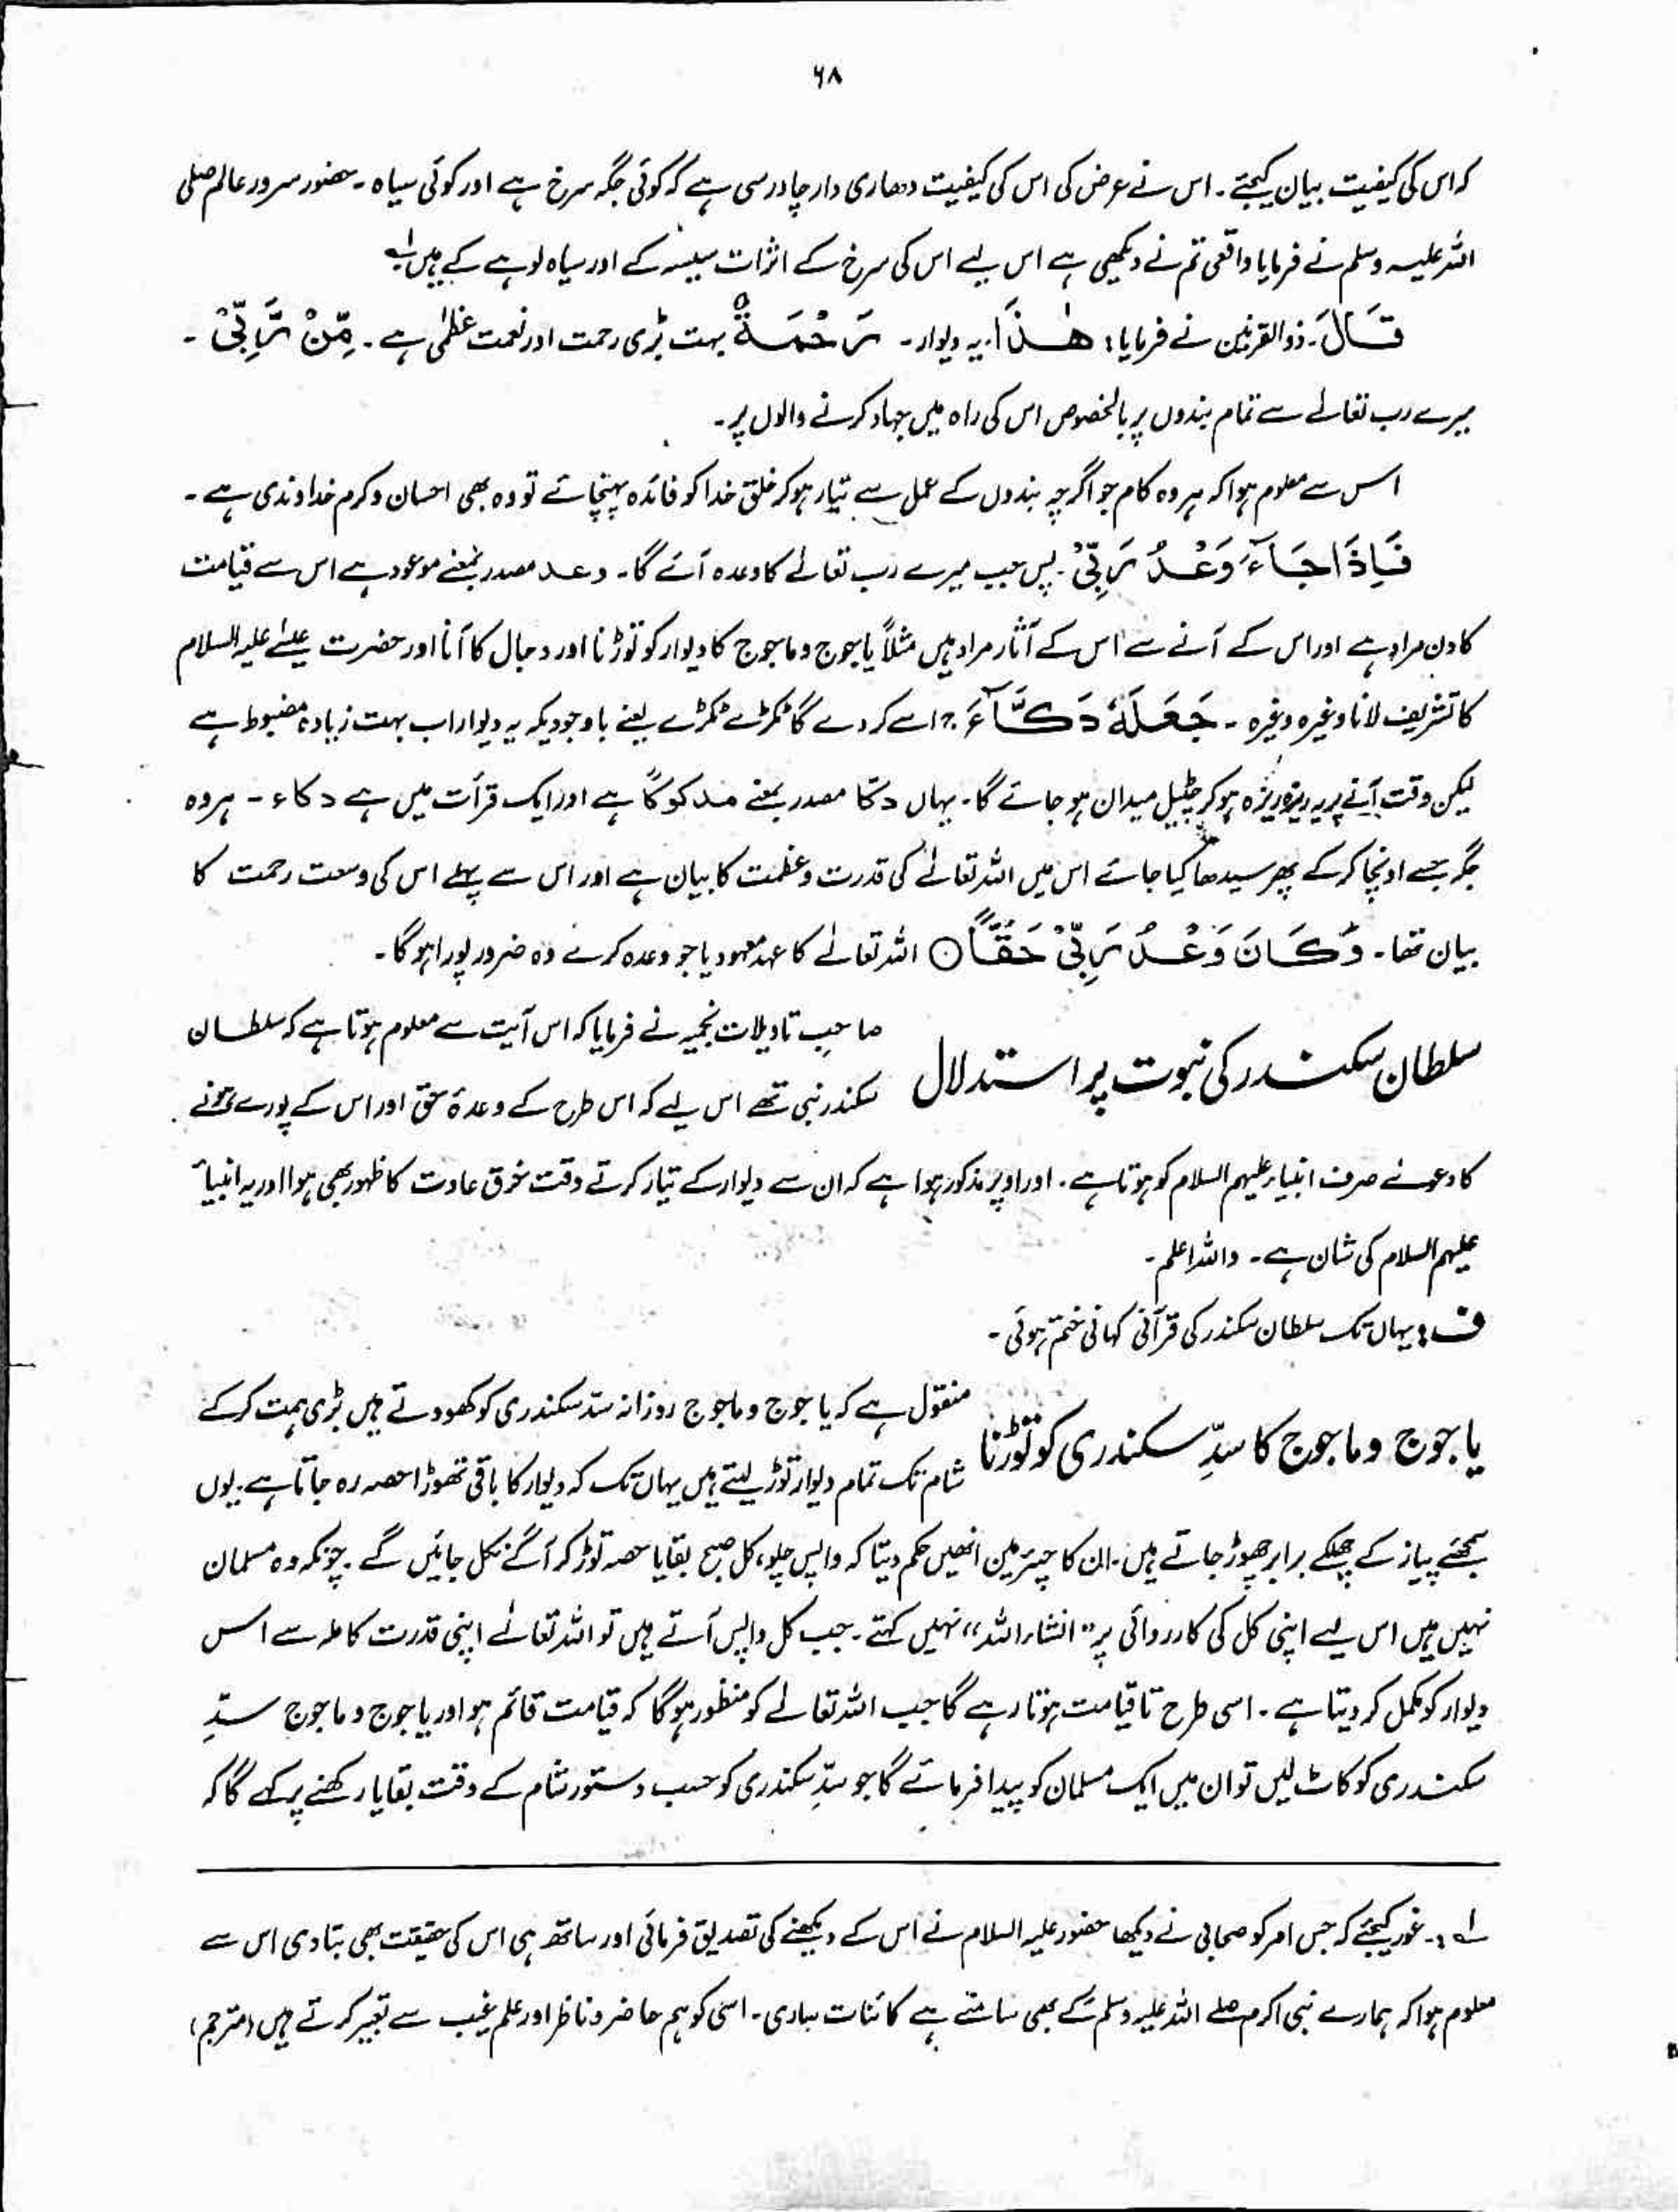 ۶۸
کہ اس کی کیفیت بیان کیجئے۔ اس نے عرض کی اس کی کیفیت دھاری دار چادر سی ہے کہ کوئی جگہ سرخ ہے اور کوئی سیاہ۔ حضور سرور عالم صلی
اللہ علیہ وسلم نے فرمایا واقعی تم نے دیکھی ہے اس لیے اس کی سرخ کے اثرات سیسہ کے اور سیاہ لوہے کے ہیں لہ
قَالَ۔ ذوالقرنین نے فرمایا: ھٰذَا۔ یہ دیوار۔ رَحْمَةٌ بہت بڑی رحمت اور نعمت عظمٰی ہے۔ مِّنْ رَّبِّیْ۔
میرے رب تعالےٰ سے تمام بندوں پر بالخصوص اس کی راہ میں جہاد کرنے والوں پر۔
اس سے معلوم ہوا کہ ہر وہ کام جو اگرچہ بندوں کے عمل سے تیار ہو کر خلق خدا کو فائدہ پہنچائے تو وہ بھی احسان و کرم خداوندی ہے۔
فَاِذَا جَآءَ وَعْدُ رَبِّیْ۔ پس جب میرے رب تعالےٰ کا وعدہ آئے گا۔ وعد مصدر بمعنے موعود ہے اس سے قیامت
کا دن مراد ہے اور اس کے آنے سے اس کے آثار مراد ہیں مثلاً یاجوج و ماجوج کا دیوار کو توڑنا اور دجال کا آنا اور حضرت عیسےٰ علیہ السلام
کا تشریف لانا وغیرہ وغیرہ۔ جَعَلَهٗ دَكَّآءَ ج اسے کر دے گا ٹکڑے ٹکڑے یعنے باوجودیکہ یہ دیوار اب بہت زیادہ مضبوط ہے
لیکن وقت آنے پر یہ ریزہ ریزہ ہو کر چٹیل میدان ہو جائے گا۔ یہاں دکا مصدر بمعنے مدکوکاً ہے اور ایک قرآت میں ہے دکاء۔ ہر وہ
جگہ جسے اونچا کر کے پھر سیدھا کیا جائے اس میں اللہ تعالےٰ کی قدرت و عظمت کا بیان ہے اور اس سے پہلے اس کی وسعت رحمت کا
بیان تھا۔ وَكَانَ وَعْدُ رَبِّیْ حَقًّا ○ اللہ تعالےٰ کا عہد معہود یا جو وعدہ کرے وہ ضرور پورا ہوگا۔
سلطان سکندر کی نبوت پر استدلال
صاحب تاویلات نجمیہ نے فرمایا کہ اس آیت سے معلوم ہوتا ہے کہ سلطان
سکندر نبی تھے اس لیے کہ اس طرح کے وعدۂ حق اور اس کے پورے ہونے
کا دعوےٰ صرف انبیاء علیہم السلام کو ہوتا ہے۔ اور اوپر مذکور ہوا ہے کہ ان سے دیوار کے تیار کرتے وقت خرق عادت کا ظہور بھی ہوا اور یہ انبیاء
علیہم السلام کی شان ہے۔ واللہ اعلم۔
ف: یہاں تک سلطان سکندر کی قرآنی کہانی ختم ہوئی۔
یاجوج و ماجوج کا سدِّ سکندری کو توڑنا
منقول ہے کہ یاجوج و ماجوج روزانہ سد سکندری کو کھودتے ہیں بڑی ہمت کر کے
شام تک تمام دیوار توڑ لیتے ہیں یہاں تک کہ دیوار کا باقی تھوڑا حصہ رہ جاتا ہے۔ یوں
سمجھئے پیاز کے چھلکے برابر چھوڑ جاتے ہیں۔ ان کا چیئرمین انھیں حکم دیتا کہ واپس چلو، کل صبح بقایا حصہ توڑ کر آگے نکل جائیں گے۔ چونکہ وہ مسلمان
نہیں ہیں اس لیے اپنی کل کی کارروائی پر "انشاء اللہ" نہیں کہتے۔ جب کل واپس آتے ہیں تو اللہ تعالےٰ اپنی قدرت کاملہ سے اس
دیوار کو مکمل کر دیتا ہے۔ اسی طرح تا قیامت ہوتا رہے گا جب اللہ تعالےٰ کو منظور ہوگا کہ قیامت قائم ہو اور یاجوج و ماجوج سدِّ
سکندری کو کاٹ لیں تو ان میں ایک مسلمان کو پیدا فرمائے گا جو سدِّ سکندری کو حسب دستور شام کے وقت بقایا رکھنے پر کہے گا کہ
لہ:۔ غور کیجئے کہ جس امر کو صحابی نے دیکھا حضور علیہ السلام نے اس کے دیکھنے کی تصدیق فرمائی اور ساتھ ہی اس کی حقیقت بھی بتا دی اس سے
معلوم ہوا کہ ہمارے نبی اکرم صلے اللہ علیہ وسلم کے بھی سامنے ہے کائنات ساری۔ اسی کو ہم حاضر و ناظر اور علم غیب سے تعبیر کرتے ہیں (مترجم)